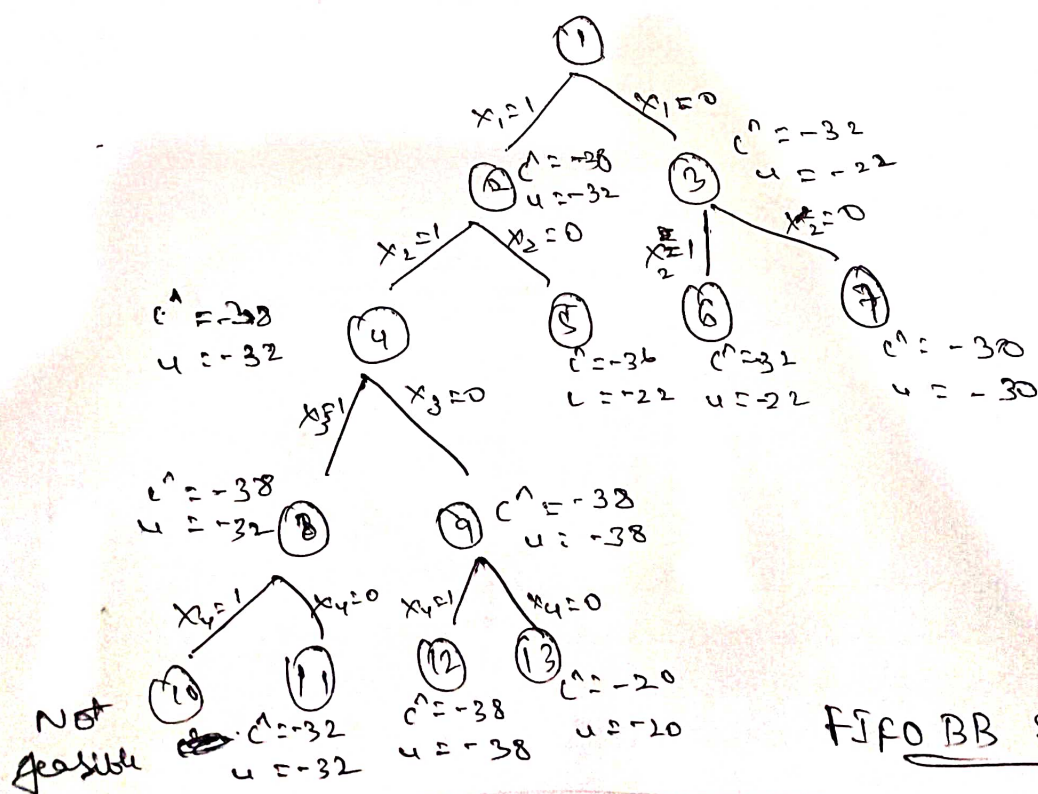 1
x₁=1
x₁=0
c^ = -38
u = -32
2
3
c^ = -32
u = -22
x₂=1
x₂=0
x₂=1
x₂=0
c^ = -38
u = -32
4
5
c^ = -36
u = -22
6
c^ = -32
u = -22
7
c^ = -30
u = -30
x₃=1
x₃=0
c^ = -38
u = -32
8
9
c^ = -38
u = -38
x₄=1
x₄=0
x₄=1
x₄=0
10
11
12
13
Not
feasible
c^ = -32
u = -32
c^ = -38
u = -38
c^ = -20
u = -20
FIFO BB